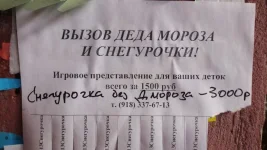 ВЫЗОВ ДЕДА МОРОЗА
И СНЕГУРОЧКИ!
Игровое представление для ваших деток
всего за 1500 руб
Снегурочка без Д.мороза – 3000р
т. (918) 337-67-13